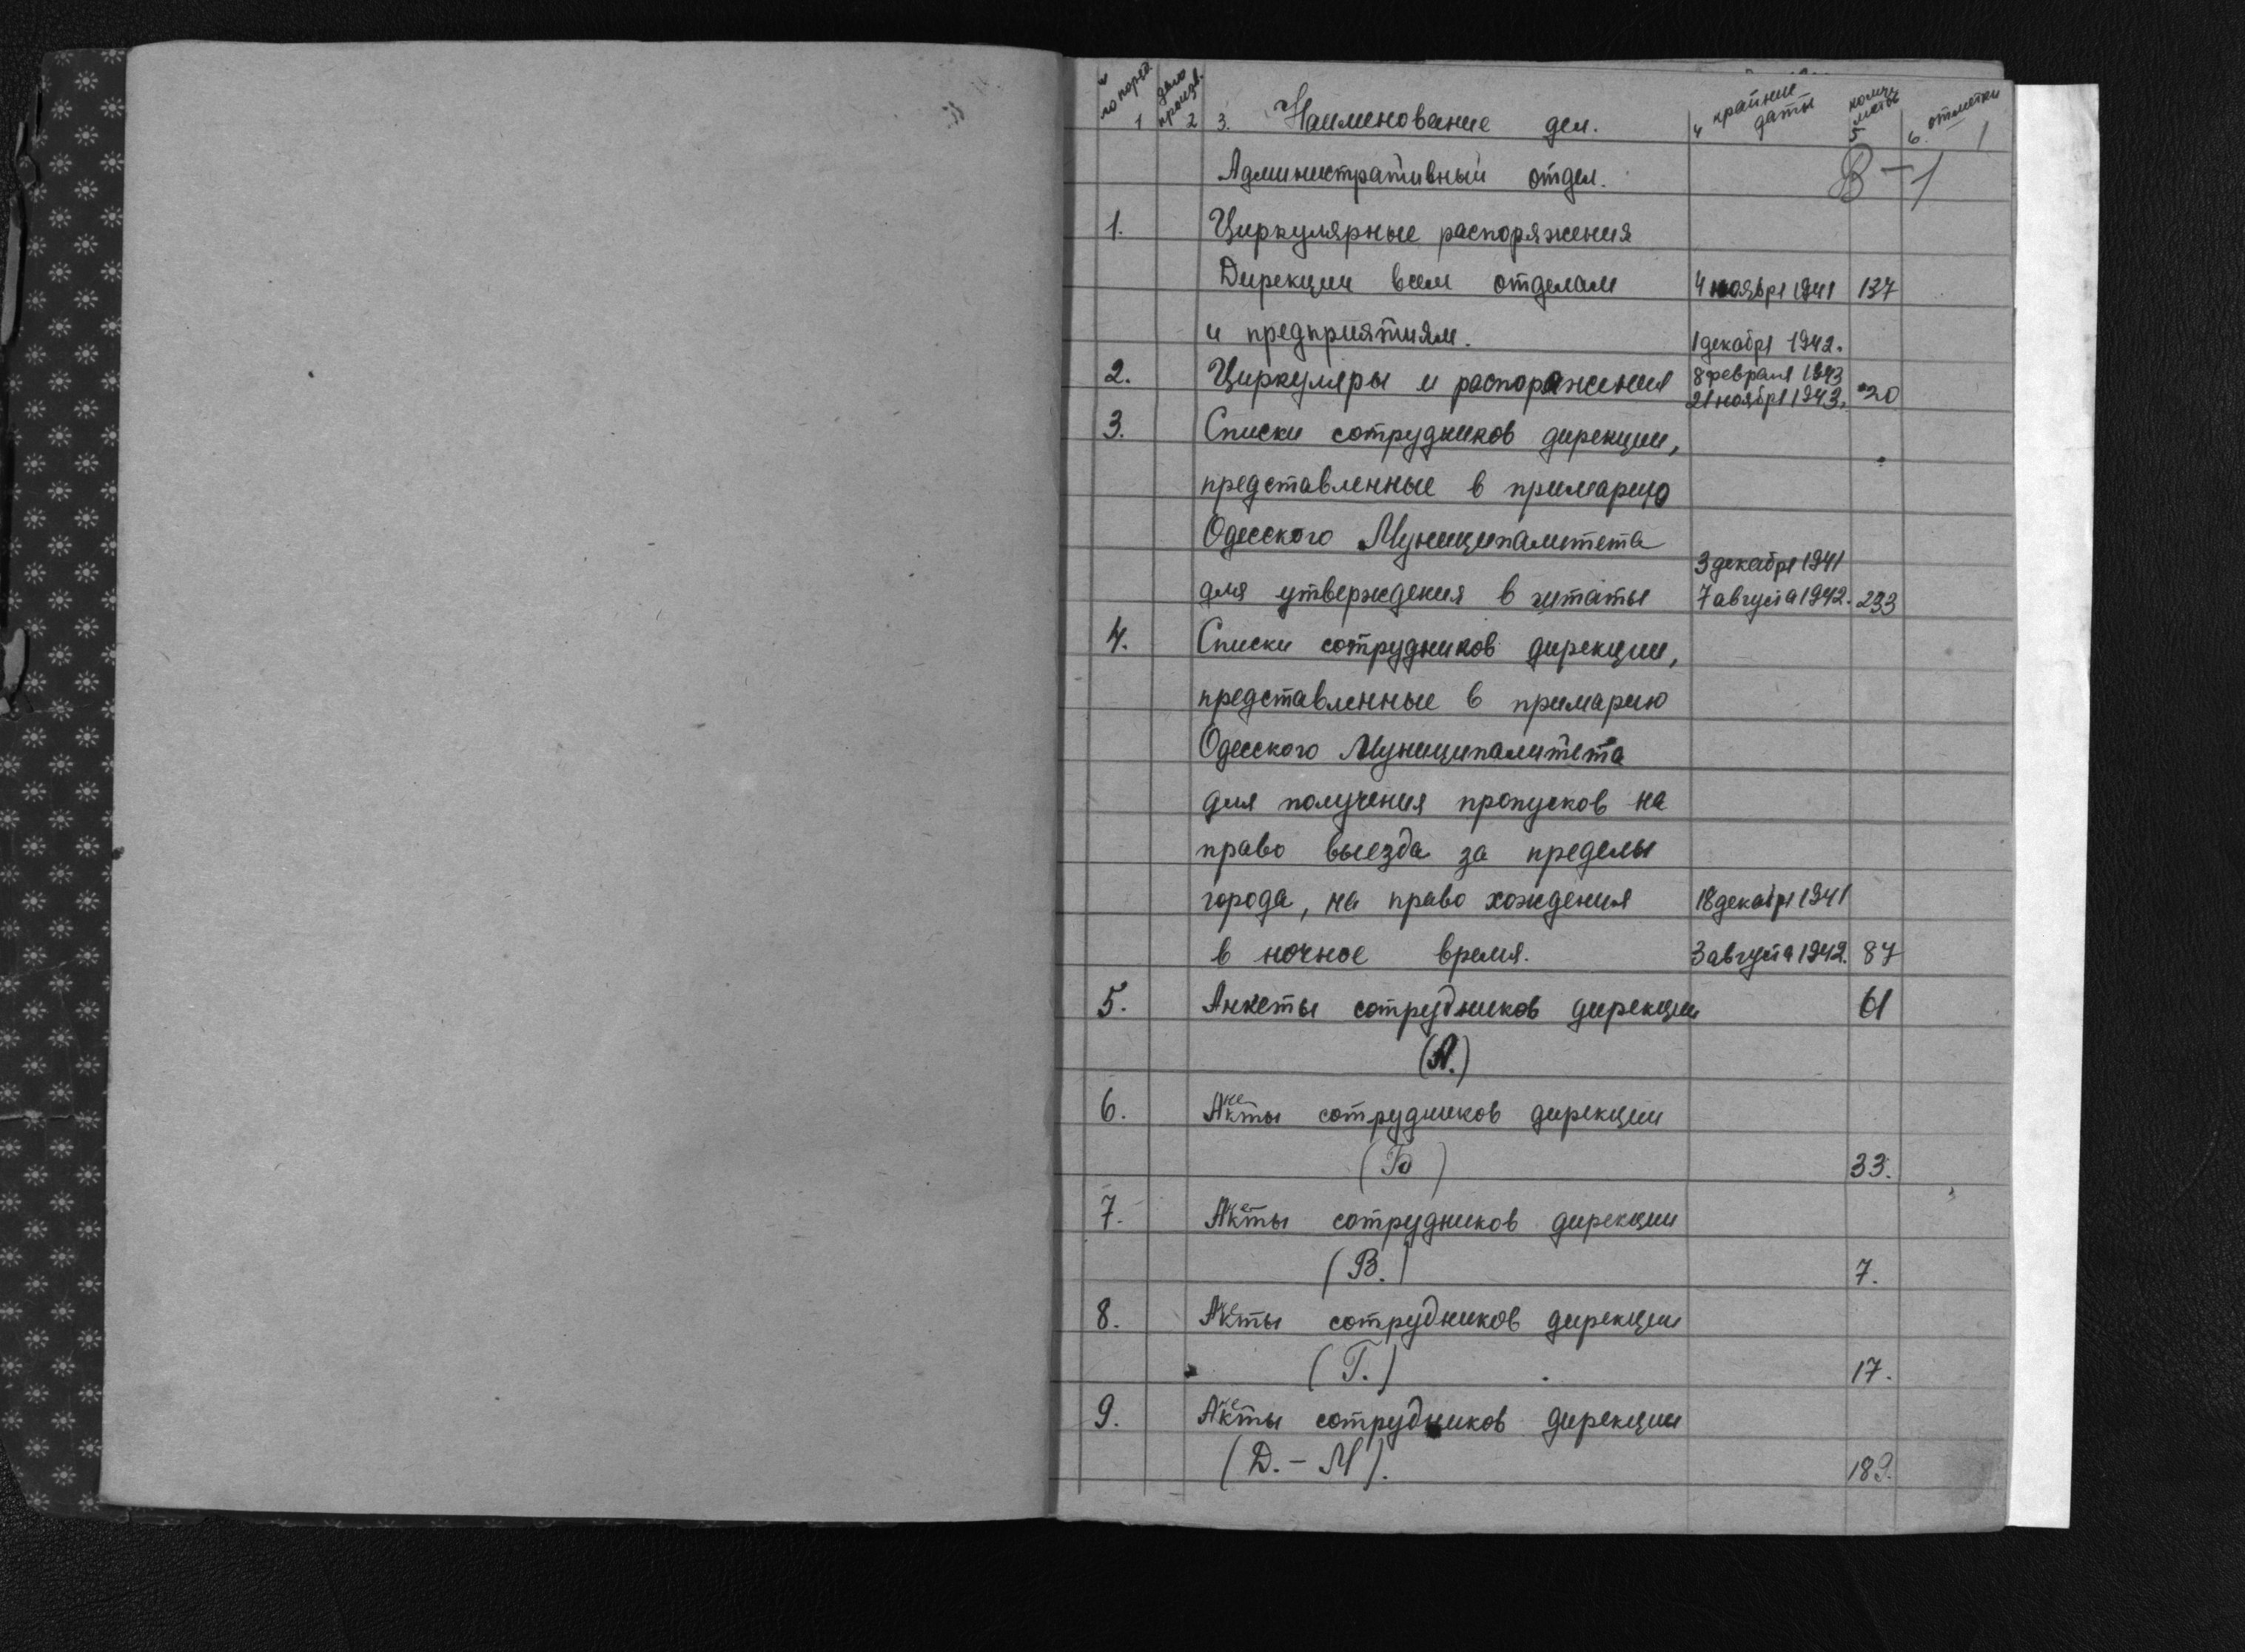 № по поряд. 1
дело произв. 2
3. Наименование дел.
4 крайние даты
колич. листов 5
6. отметки
1
В-1
Административный отдел.
1. Циркулярные распоряжения
Дирекции всем отделам 4 ноября 1941 137
и предприятиям. 1 декабря 1942.
2. Циркуляры и распоряжения 8 февраля 1943
21 ноября 1943. 20
3. Списки сотрудников дирекции,
представленные в примарию
Одесского Муниципалитета
3 декабря 1941
для утверждения в штаты 7 августа 1942. 233
4. Списки сотрудников дирекции,
представленные в примарию
Одесского Муниципалитета
для получения пропусков на
право выезда за пределы
города, на право хождения 18 декабря 1941
в ночное время. 3 августа 1942. 87
5. Анкеты сотрудников дирекции 61
(А.)
6. Анкеты сотрудников дирекции
(Б) 33.
7. Анкеты сотрудников дирекции
(В.) 7.
8. Анкеты сотрудников дирекции
(Г.) 17.
9. Анкеты сотрудников дирекции
(Д. - М). 189.